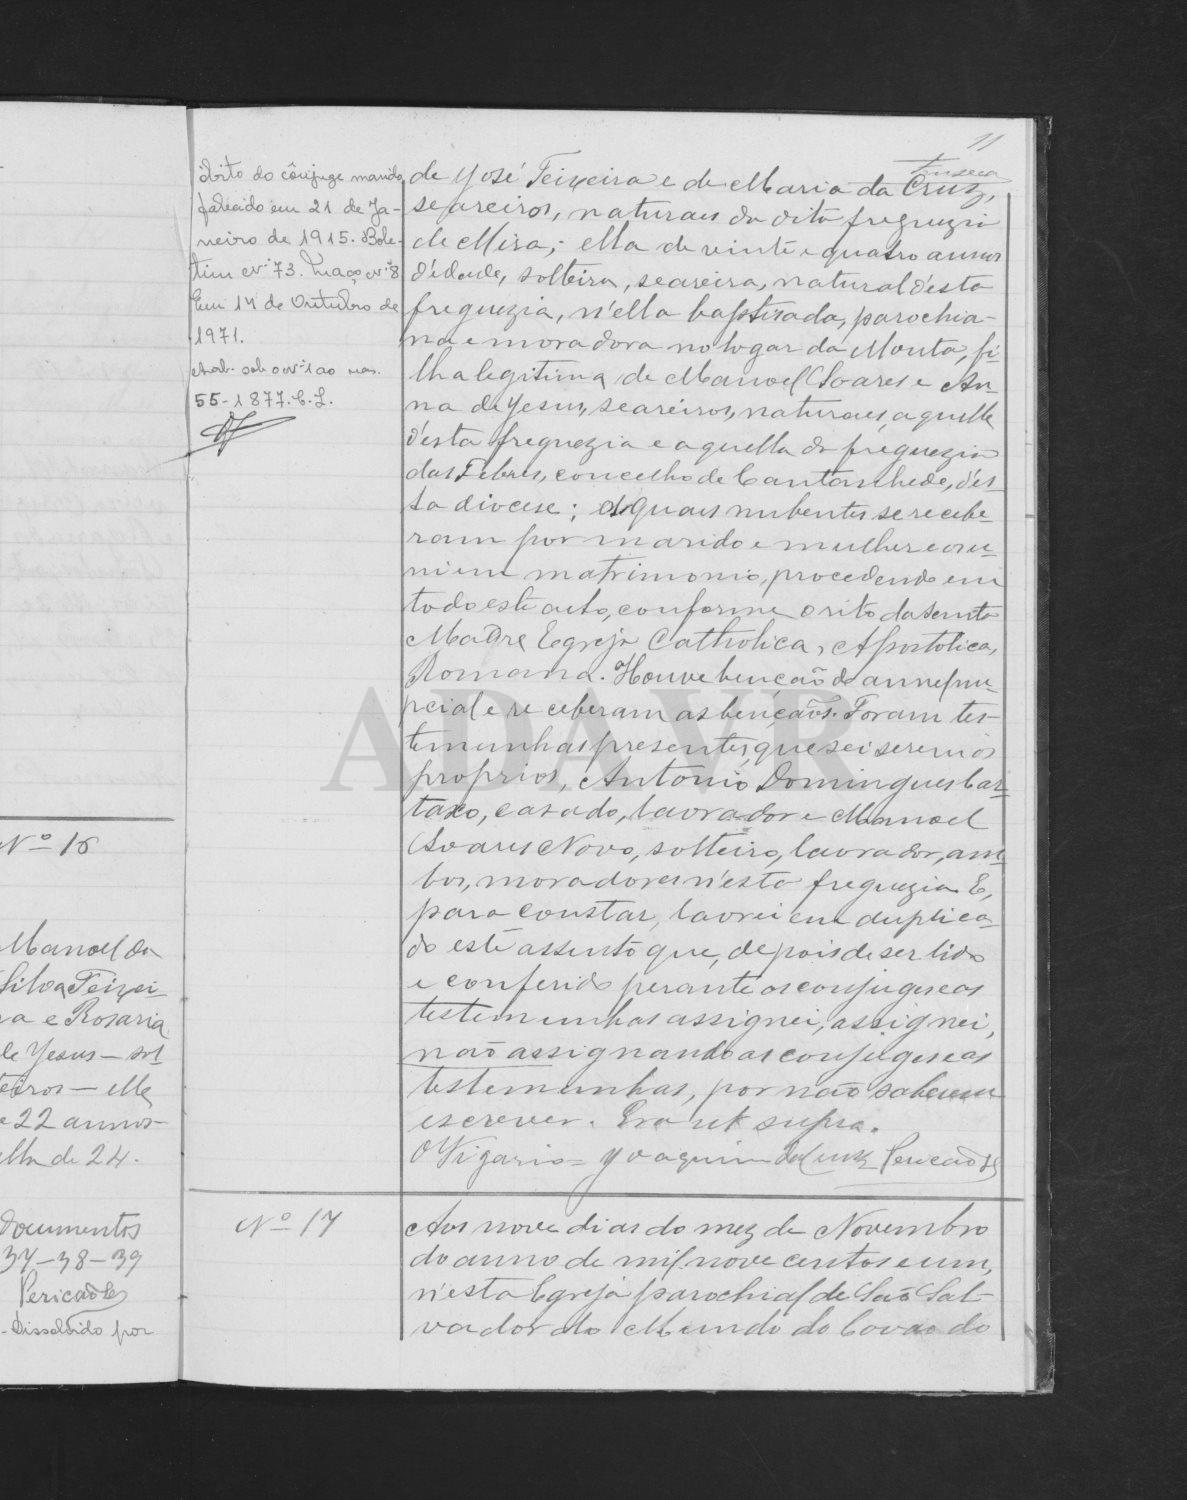 Nº 16
Manoel da
Silva Teixei
ra e Rosaria
de Jesus — sol
teiros — elle
e 22 annos
ella de 24.
Documentos
37-38-39
Pericão
Dissolvido por
óbito do cônjuge marido,
falecido em 21 de Ja-
neiro de 1915. Bole-
tim nº 73. Maço nº 8
Em 14 de Outubro de
1971.
sob o nº 1 ao
55-1877. C. L.
11
Fonseca
de José Teixeira e de Maria da Cruz,
seareiros, naturaes da dita freguezia
de Mira; ella de vinte e quatro annos
d'edade, solteira, seareira, natural d'esta
freguezia, n'ella baptisada, parochia-
na e moradora no logar da Mouta, fi-
lha legitima de Manoel Soares e An-
na de Jesus, seareiros, naturaes, aquelle
d'esta freguezia e aquella da freguezia
das Febres, concelho de Cantanhede, d'es-
ta diocese; os quaes nubentes se recebe-
ram por marido e mulher e os u-
ni em matrimonio, procedendo em
todo este acto, conforme o rito da Santa
Madre Egreja Catholica, Apostolica,
Romana. Houve benção do annel nu-
pcial e receberam as bençãos. Foram tes-
temunhas presentes, que sei serem os
proprios, Antonio Domingues Car-
taxo, casado, lavrador e Manoel
Soares Novo, solteiro, lavrador, am-
bos, moradores n'esta freguezia E,
para constar, lavrei em duplica-
do este assento que, depois de ser lido
e conferido perante os conjuges e as
testemunhas assignei, assignei,
não assignando os conjuges e as
testemunhas, por não saberem
escrever. Era ut supra.
O Vigario = Joaquim da Cruz Pericão
Nº 17
Aos nove dias do mez de Novembro
do anno de mil nove centos e um,
n'esta Egreja parochial de São Sal-
vador do Mundo do Covão do
ADAVR